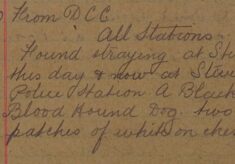 From D.C.C.
All Stations
Found straying at St
this day & now at Stew
Police Station A Black
Blood Hound Dog. two
patches of white on ches